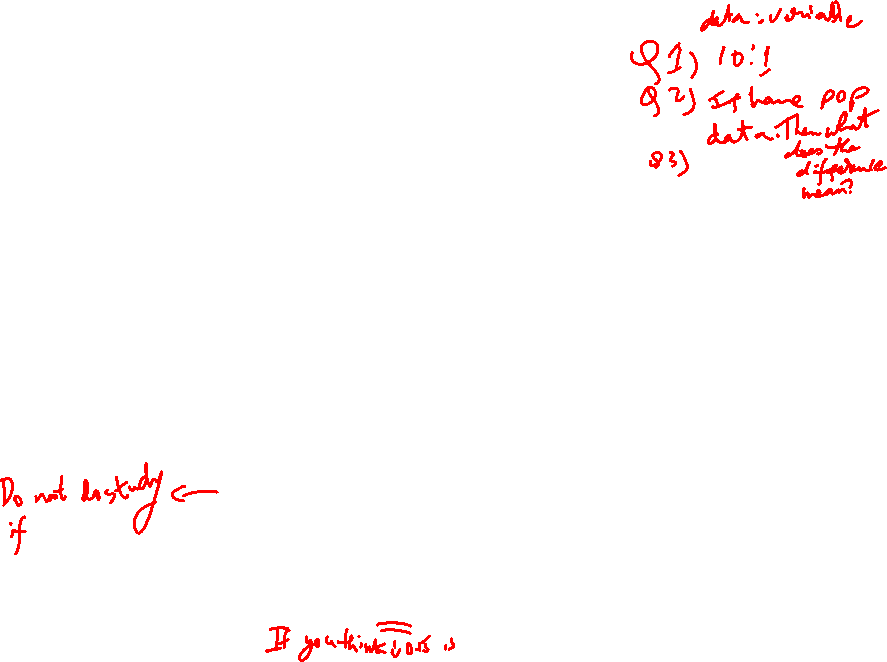 data : variable
Q 1) 10:1
Q 2) If I have pop
data. Then what
does the
Q3)
difference
mean?
Do not do study ←
if
If you think is